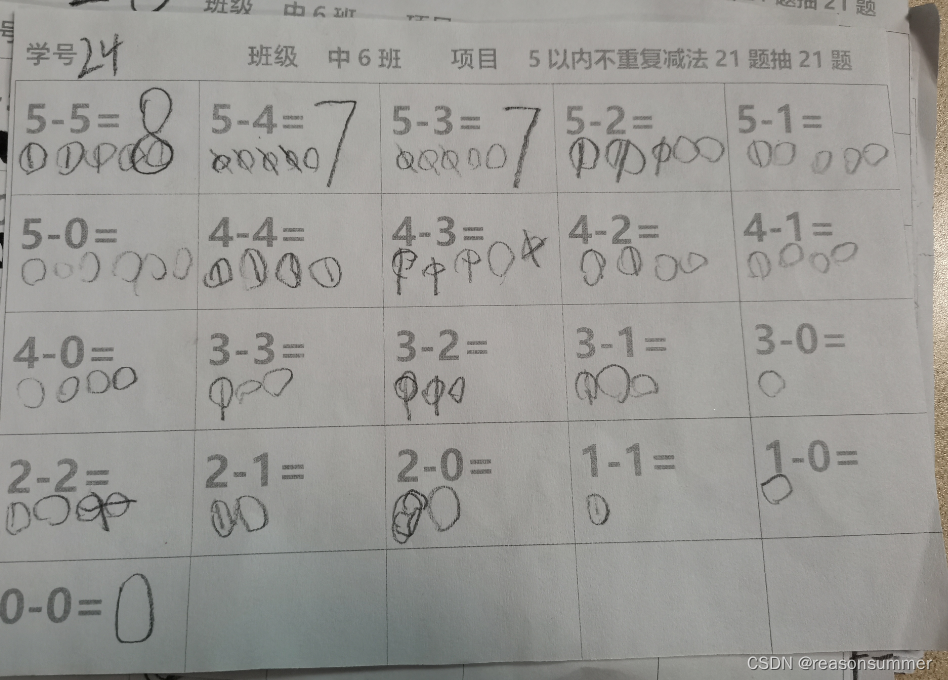 班级 中6班 项目
题抽21题
号
学号24 班级 中6班 项目 5以内不重复减法21题抽21题
5-5=8 5-4=7 5-3=7 5-2= 5-1=
5-0= 4-4= 4-3= 4-2= 4-1=
4-0= 3-3= 3-2= 3-1= 3-0=
2-2= 2-1= 2-0= 1-1= 1-0=
0-0=0
CSDN @reasonsummer